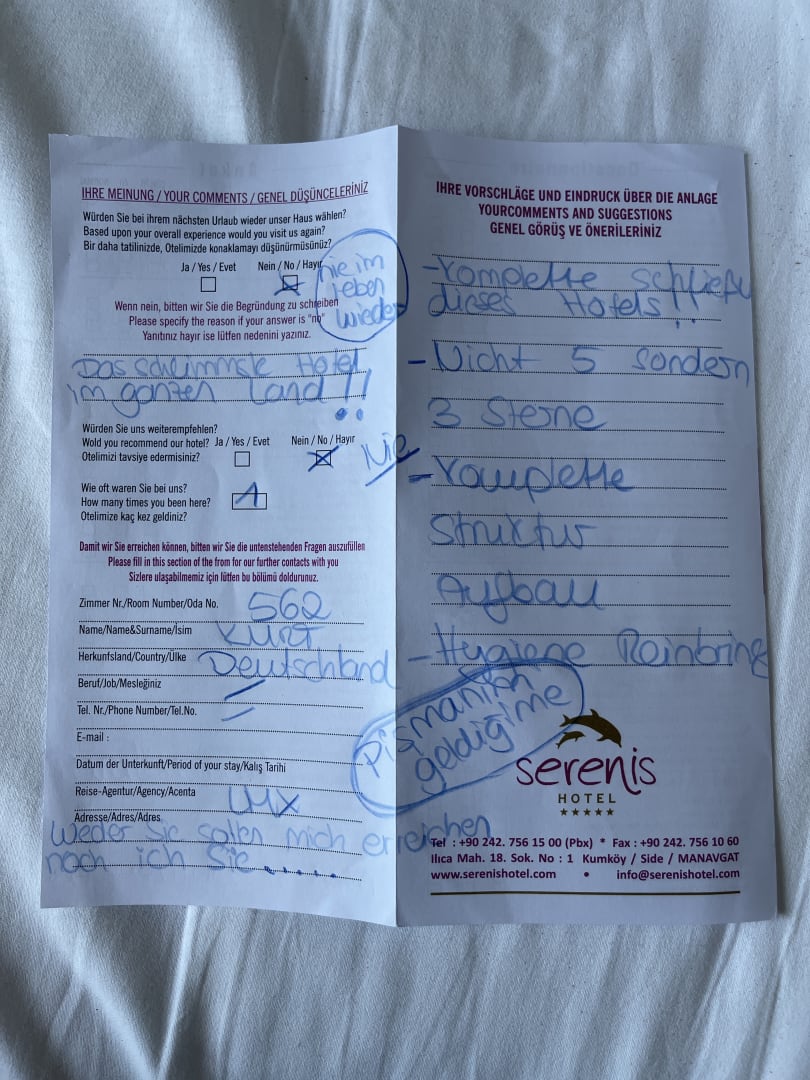 IHRE MEINUNG / YOUR COMMENTS / GENEL DÜŞÜNCELERİNİZ
Würden Sie bei ihrem nächsten Urlaub wieder unser Haus wählen?
Based upon your overall experience would you visit us again?
Bir daha tatilinizde, Otelimizde konaklamayı düşünürmüsünüz?
Ja / Yes / Evet
Nein / No / Hayır
nie im
leben
wieder
Wenn nein, bitten wir Sie die Begründung zu schreiben
Please specify the reason if your answer is "no"
Yanıtınız hayır ise lütfen nedenini yazınız.
Das schlimmste Hotel
im ganzen Land!!
Würden Sie uns weiterempfehlen?
Wold you recommend our hotel? Ja / Yes / Evet Nein / No / Hayır
Otelimizi tavsiye edermisiniz?
Nie
Wie oft waren Sie bei uns?
How many times you been here?
Otelimize kaç kez geldiniz?
1
Damit wir Sie erreichen können, bitten wir Sie die untenstehenden Fragen auszufüllen
Please fill in this section of the from for our further contacts with you
Sizlere ulaşabilmemiz için lütfen bu bölümü doldurunuz.
Zimmer Nr./Room Number/Oda No. 562
Name/Name&Surname/İsim Kurt
Herkunfsland/Country/Ülke Deutschland
Beruf/Job/Mesleğiniz
Tel. Nr./Phone Number/Tel.No.
E-mail :
Datum der Unterkunft/Period of your stay/Kalış Tarihi
Reise-Agentur/Agency/Acenta
Adresse/Adres/Adres
Weder Sie sollen mich erreichen
noch ich Sie......
IHRE VORSCHLÄGE UND EINDRUCK ÜBER DIE ANLAGE
YOURCOMMENTS AND SUGGESTIONS
GENEL GÖRÜŞ VE ÖNERİLERİNİZ
-Komplette
dieses Hotels!!
- Nicht 5 sondern
3 Sterne
- Komplette
Struktur
Aufbau
- Hygiene
Pişmanım
geldiğime
serenis
HOTEL
★★★★★
Tel : +90 242. 756 15 00 (Pbx) * Fax : +90 242. 756 10 60
Ilıca Mah. 18. Sok. No : 1 Kumköy / Side / MANAVGAT
www.serenishotel.com • info@serenishotel.com